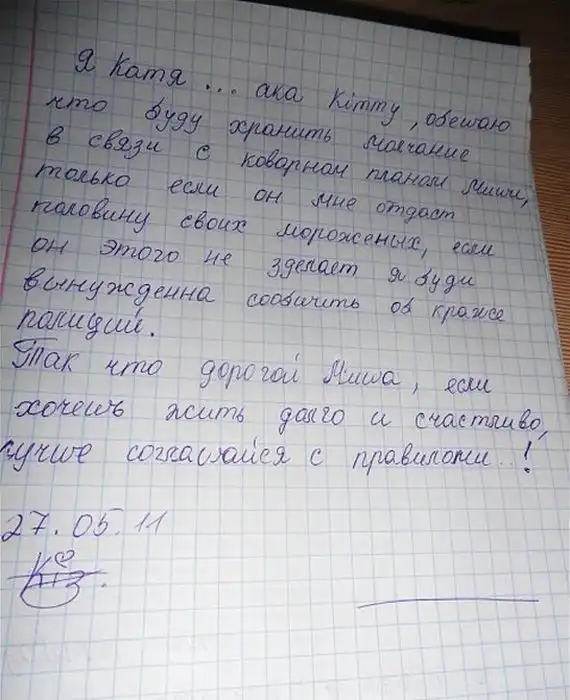 Я Катя ... ака Kimmy, обещаю
что буду хранить молчание
в связи с коварном планом Миши,
только если он мне отдаст
половину своих мороженых, если
он этого не зделает я буди
вынужденна сообичить об краже
полиции.
Так что дорогой Миша, если
хочешь жить долго и счастливо,
лучше соглашайся с правилами..!
27.05.11